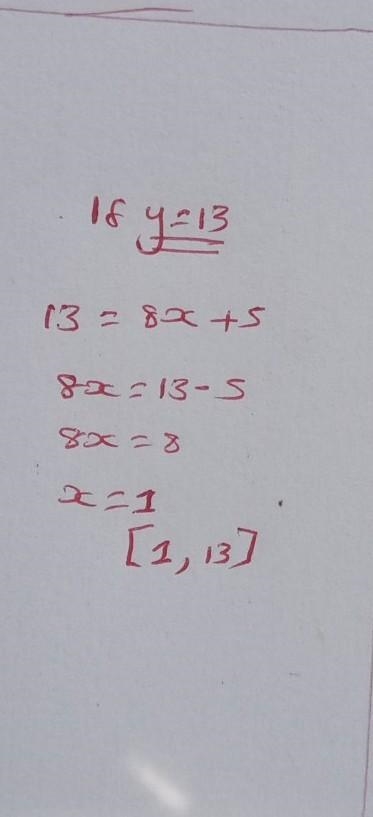 If y=13
13 = 8x + 5
8x = 13 - 5
8x = 8
x = 1
[1, 13]